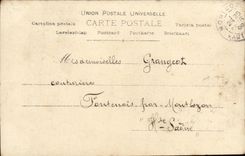 UNION POSTALE UNIVERSELLE
CARTE POSTALE
Cartolina postale
Tarjeta postal
Levelezö-Lap Postcard Postkarte Brevkaart
Mesdemoiselles Grangeot
couturières
Fontenois-par-Montbozon
Hte Saône